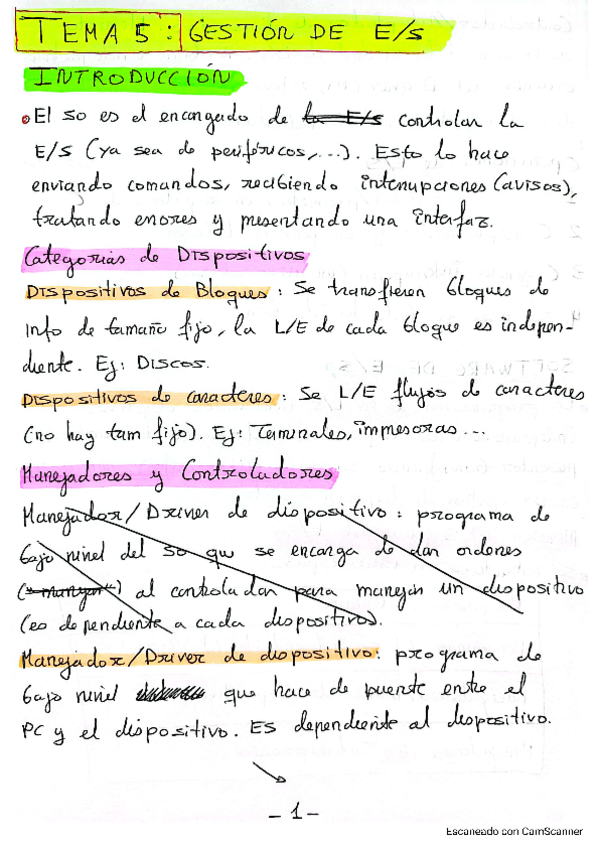 TEMA 5: GESTIÓN DE E/S
INTRODUCCIÓN
El SO es el encargado de la E/S controlar la
E/S (ya sea de periféricos,...). Esto lo hace
enviando comandos, recibiendo interrupciones (avisos),
tratando errores y presentando una interfaz.
Categorías de Dispositivos
Dispositivos de Bloques: Se transfieren bloques de
info de tamaño fijo, la L/E de cada bloque es indepen-
diente. Ej: Discos.
Dispositivos de caracteres: Se L/E flujos de caracteres
(no hay tam fijo). Ej: Terminales, impresoras...
Manejadores y Controladores
Manejador/Driver de dispositivo: programa de
bajo nivel del SO que se encarga de dar ordenes
al controlador para manejar un dispositivo
(es dependiente a cada dispositivo).
Manejador/Driver de dispositivo: programa de
bajo nivel que hace de puente entre el
PC y el dispositivo. ES dependiente al dispositivo.
- 1 -
Escaneado con CamScanner